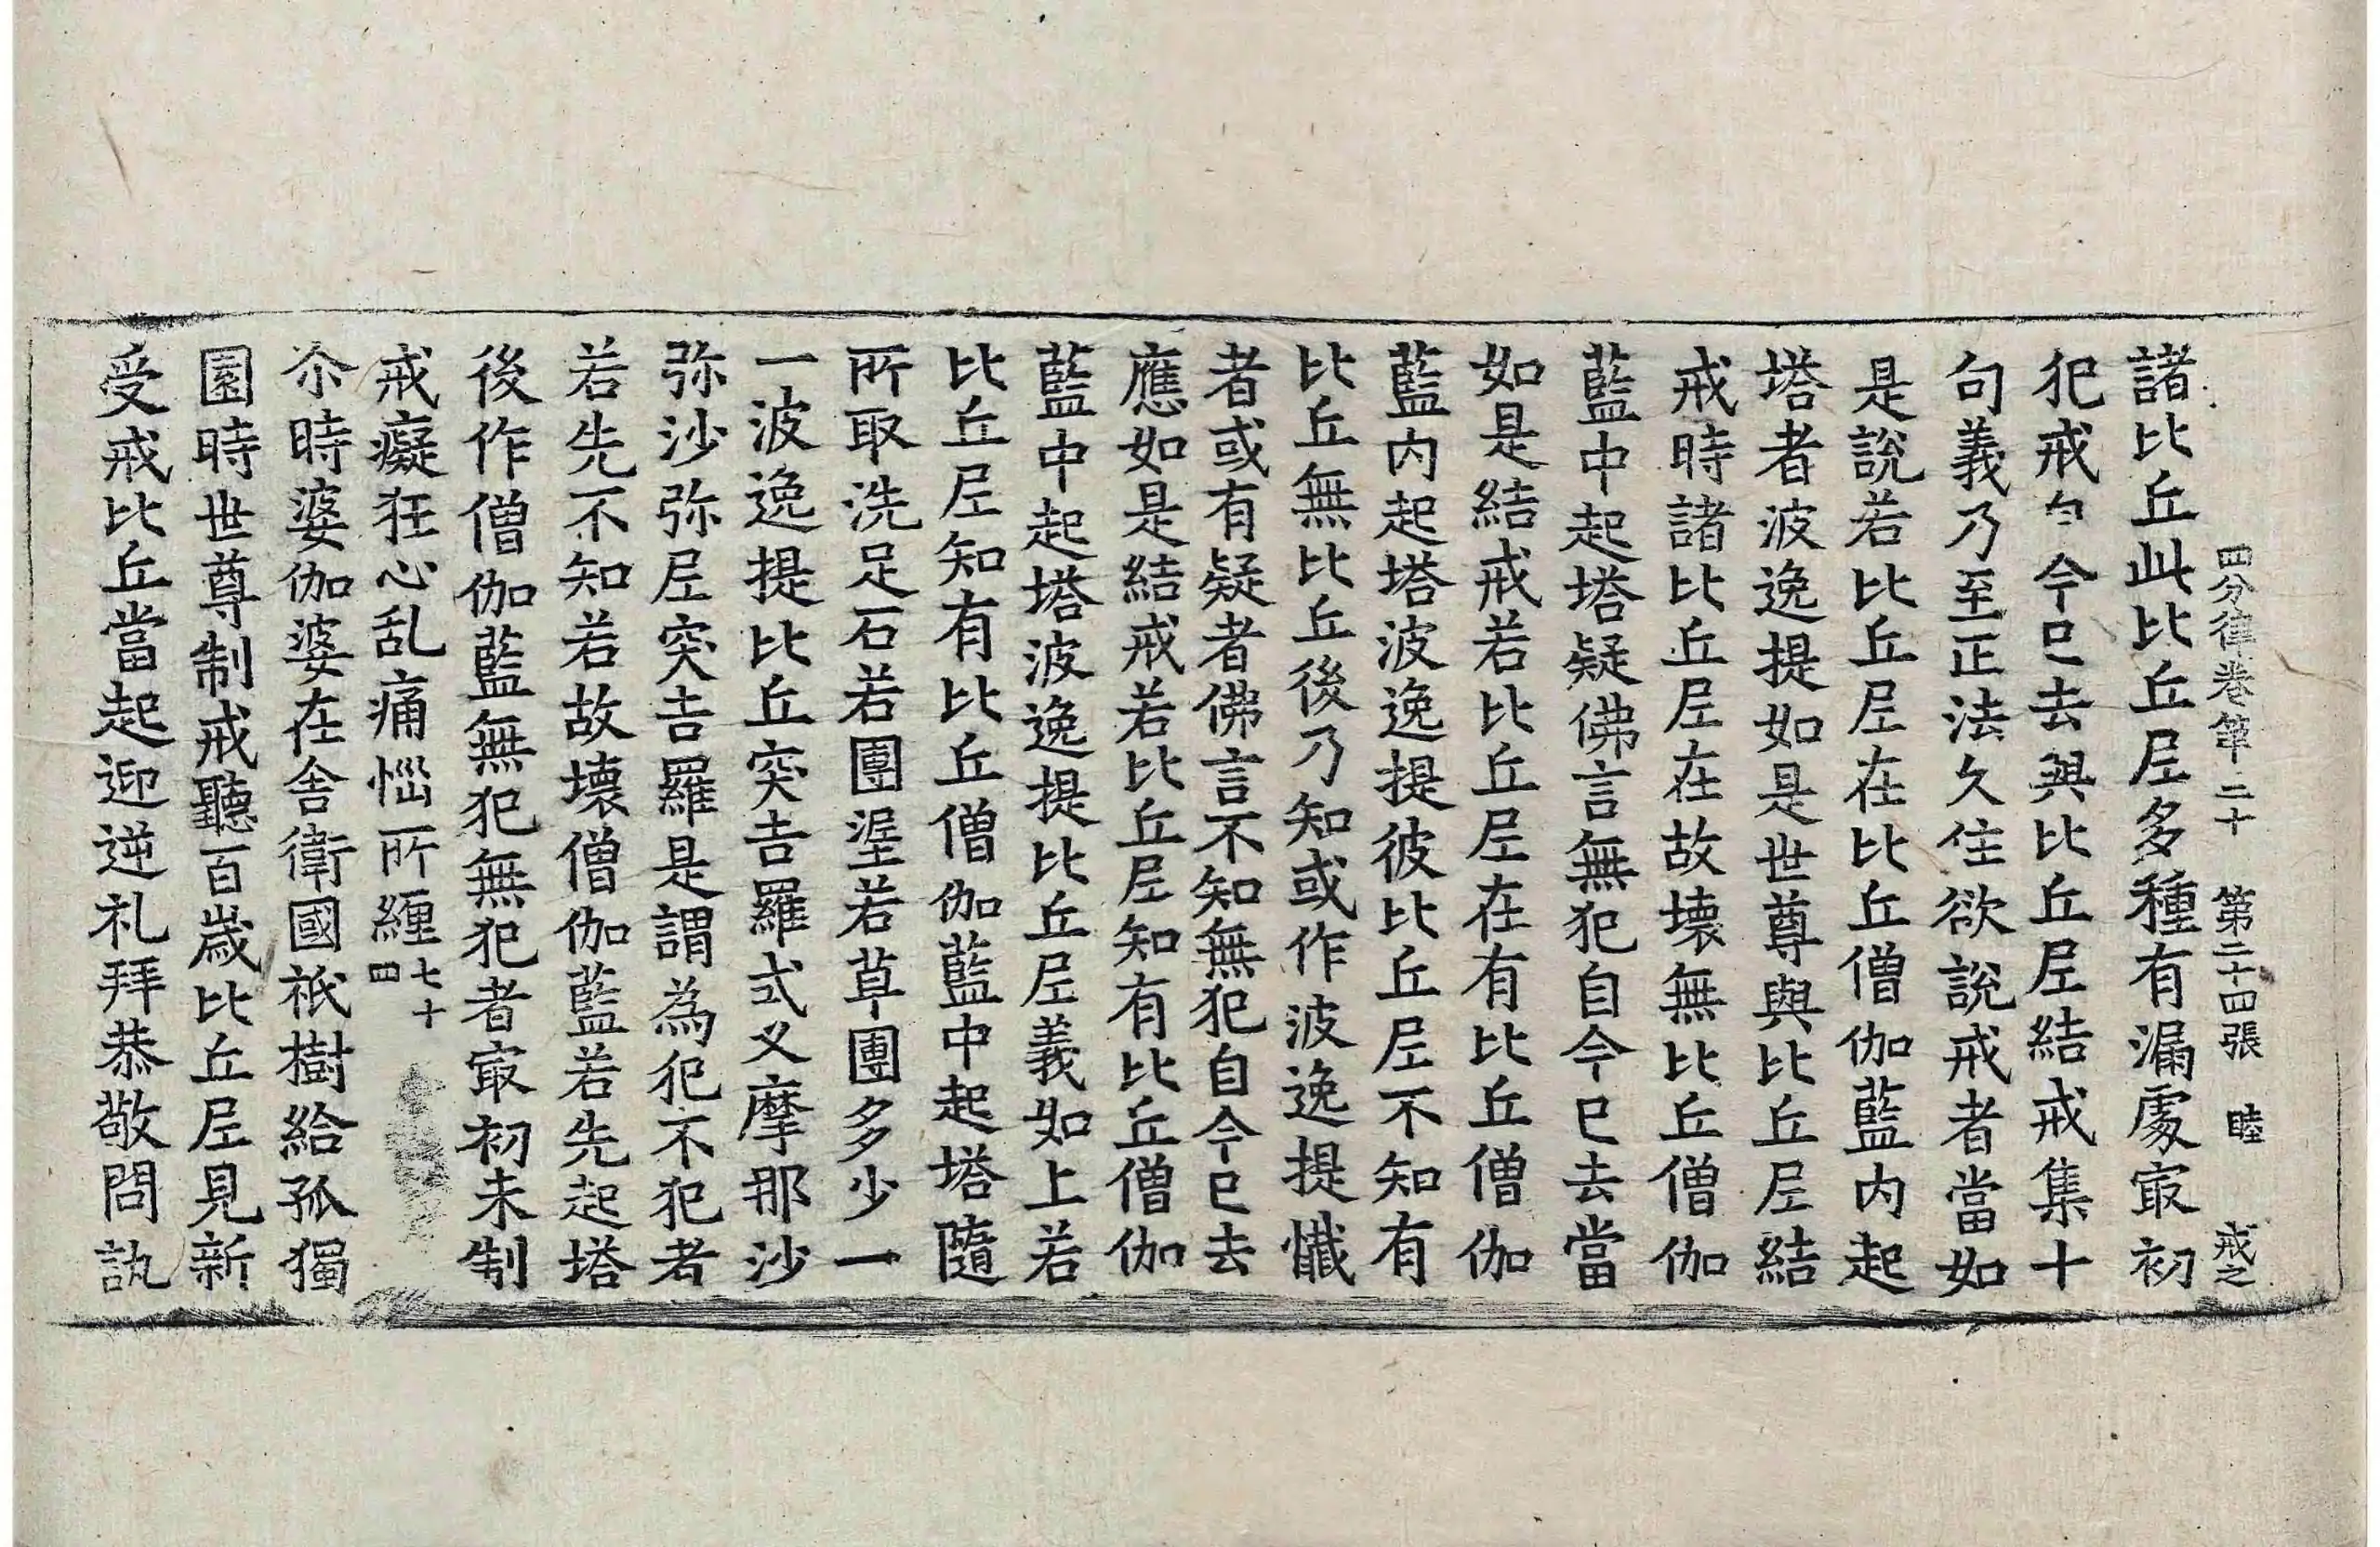 四分律卷第二十 第二十四張 睦 戒之
諸比丘此比丘尼多種有漏處冣初
犯戒自今已去與比丘尼結戒集十
句義乃至正法久住欲說戒者當如
是說若比丘尼在比丘僧伽藍內起
塔者波逸提如是世尊與比丘尼結
戒時諸比丘尼在故壞無比丘僧伽
藍中起塔疑佛言無犯自今已去當
如是結戒若比丘尼在有比丘僧伽
藍內起塔波逸提彼比丘尼不知有
比丘無比丘後乃知或作波逸提懺
者或有疑者佛言不知無犯自今已去
應如是結戒若比丘尼知有比丘僧伽
藍中起塔波逸提比丘尼義如上若
比丘尼知有比丘僧伽藍中起塔隨
所取洗足石若團埿若草團多少一
一波逸提比丘突吉羅式叉摩那沙
弥沙弥尼突吉羅是謂為犯不犯者
若先不知若故壞僧伽藍若先起塔
後作僧伽藍無犯無犯者冣初未制
戒癡狂心乱痛惱所纏七十四
尒時婆伽婆在舍衛國祇樹給孤獨
園時世尊制戒聽百歲比丘尼見新
受戒比丘當起迎逆礼拜恭敬問訊